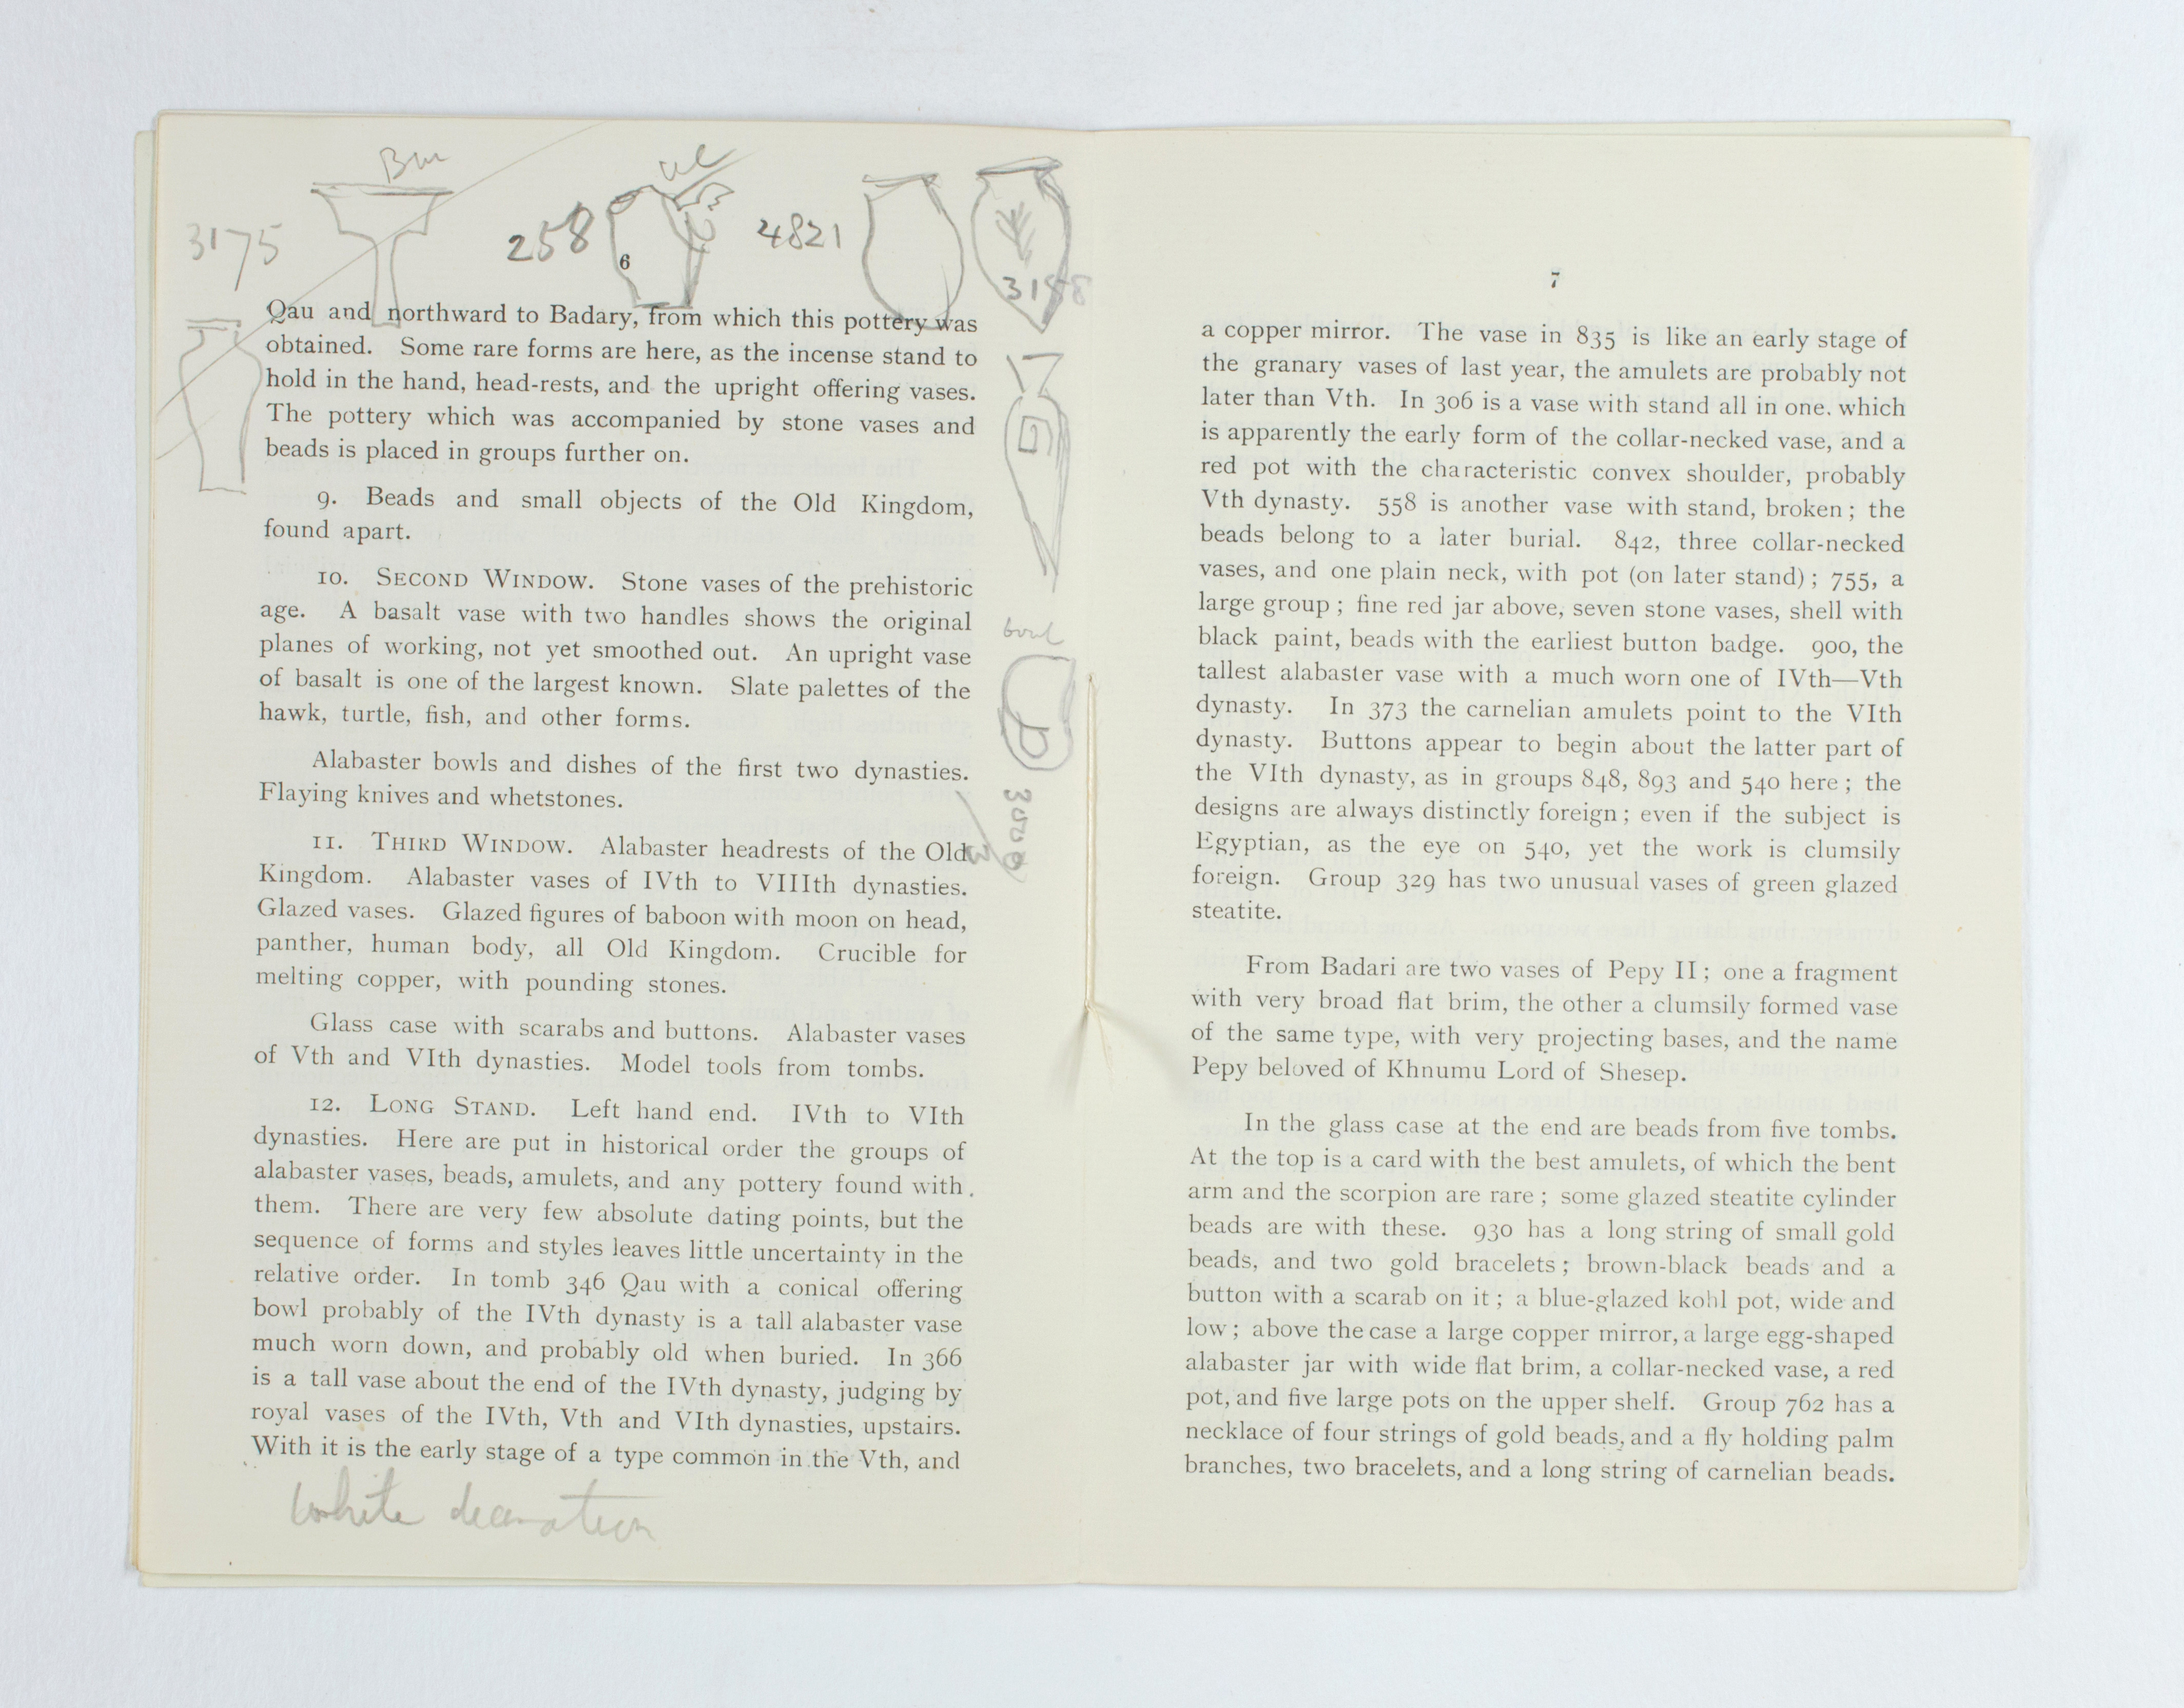 3175
258
4821
3188
6
Qau and northward to Badary, from which this pottery was
obtained. Some rare forms are here, as the incense stand to
hold in the hand, head-rests, and the upright offering vases.
The pottery which was accompanied by stone vases and
beads is placed in groups further on.
9. Beads and small objects of the Old Kingdom,
found apart.
10. SECOND WINDOW. Stone vases of the prehistoric
age. A basalt vase with two handles shows the original
planes of working, not yet smoothed out. An upright vase
of basalt is one of the largest known. Slate palettes of the
hawk, turtle, fish, and other forms.
Alabaster bowls and dishes of the first two dynasties.
Flaying knives and whetstones.
11. THIRD WINDOW. Alabaster headrests of the Old
Kingdom. Alabaster vases of IVth to VIIIth dynasties.
Glazed vases. Glazed figures of baboon with moon on head,
panther, human body, all Old Kingdom. Crucible for
melting copper, with pounding stones.
Glass case with scarabs and buttons. Alabaster vases
of Vth and VIth dynasties. Model tools from tombs.
12. LONG STAND. Left hand end. IVth to VIth
dynasties. Here are put in historical order the groups of
alabaster vases, beads, amulets, and any pottery found with
them. There are very few absolute dating points, but the
sequence of forms and styles leaves little uncertainty in the
relative order. In tomb 346 Qau with a conical offering
bowl probably of the IVth dynasty is a tall alabaster vase
much worn down, and probably old when buried. In 366
is a tall vase about the end of the IVth dynasty, judging by
royal vases of the IVth, Vth and VIth dynasties, upstairs.
With it is the early stage of a type common in the Vth, and
bowl
white decoration
7
a copper mirror. The vase in 835 is like an early stage of
the granary vases of last year, the amulets are probably not
later than Vth. In 306 is a vase with stand all in one. which
is apparently the early form of the collar-necked vase, and a
red pot with the characteristic convex shoulder, probably
Vth dynasty. 558 is another vase with stand, broken; the
beads belong to a later burial. 842, three collar-necked
vases, and one plain neck, with pot (on later stand); 755, a
large group; fine red jar above, seven stone vases, shell with
black paint, beads with the earliest button badge. 900, the
tallest alabaster vase with a much worn one of IVth—Vth
dynasty. In 373 the carnelian amulets point to the VIth
dynasty. Buttons appear to begin about the latter part of
the VIth dynasty, as in groups 848, 893 and 540 here; the
designs are always distinctly foreign; even if the subject is
Egyptian, as the eye on 540, yet the work is clumsily
foreign. Group 329 has two unusual vases of green glazed
steatite.
From Badari are two vases of Pepy II; one a fragment
with very broad flat brim, the other a clumsily formed vase
of the same type, with very projecting bases, and the name
Pepy beloved of Khnumu Lord of Shesep.
In the glass case at the end are beads from five tombs.
At the top is a card with the best amulets, of which the bent
arm and the scorpion are rare; some glazed steatite cylinder
beads are with these. 930 has a long string of small gold
beads, and two gold bracelets; brown-black beads and a
button with a scarab on it; a blue-glazed kohl pot, wide and
low; above the case a large copper mirror, a large egg-shaped
alabaster jar with wide flat brim, a collar-necked vase, a red
pot, and five large pots on the upper shelf. Group 762 has a
necklace of four strings of gold beads, and a fly holding palm
branches, two bracelets, and a long string of carnelian beads.